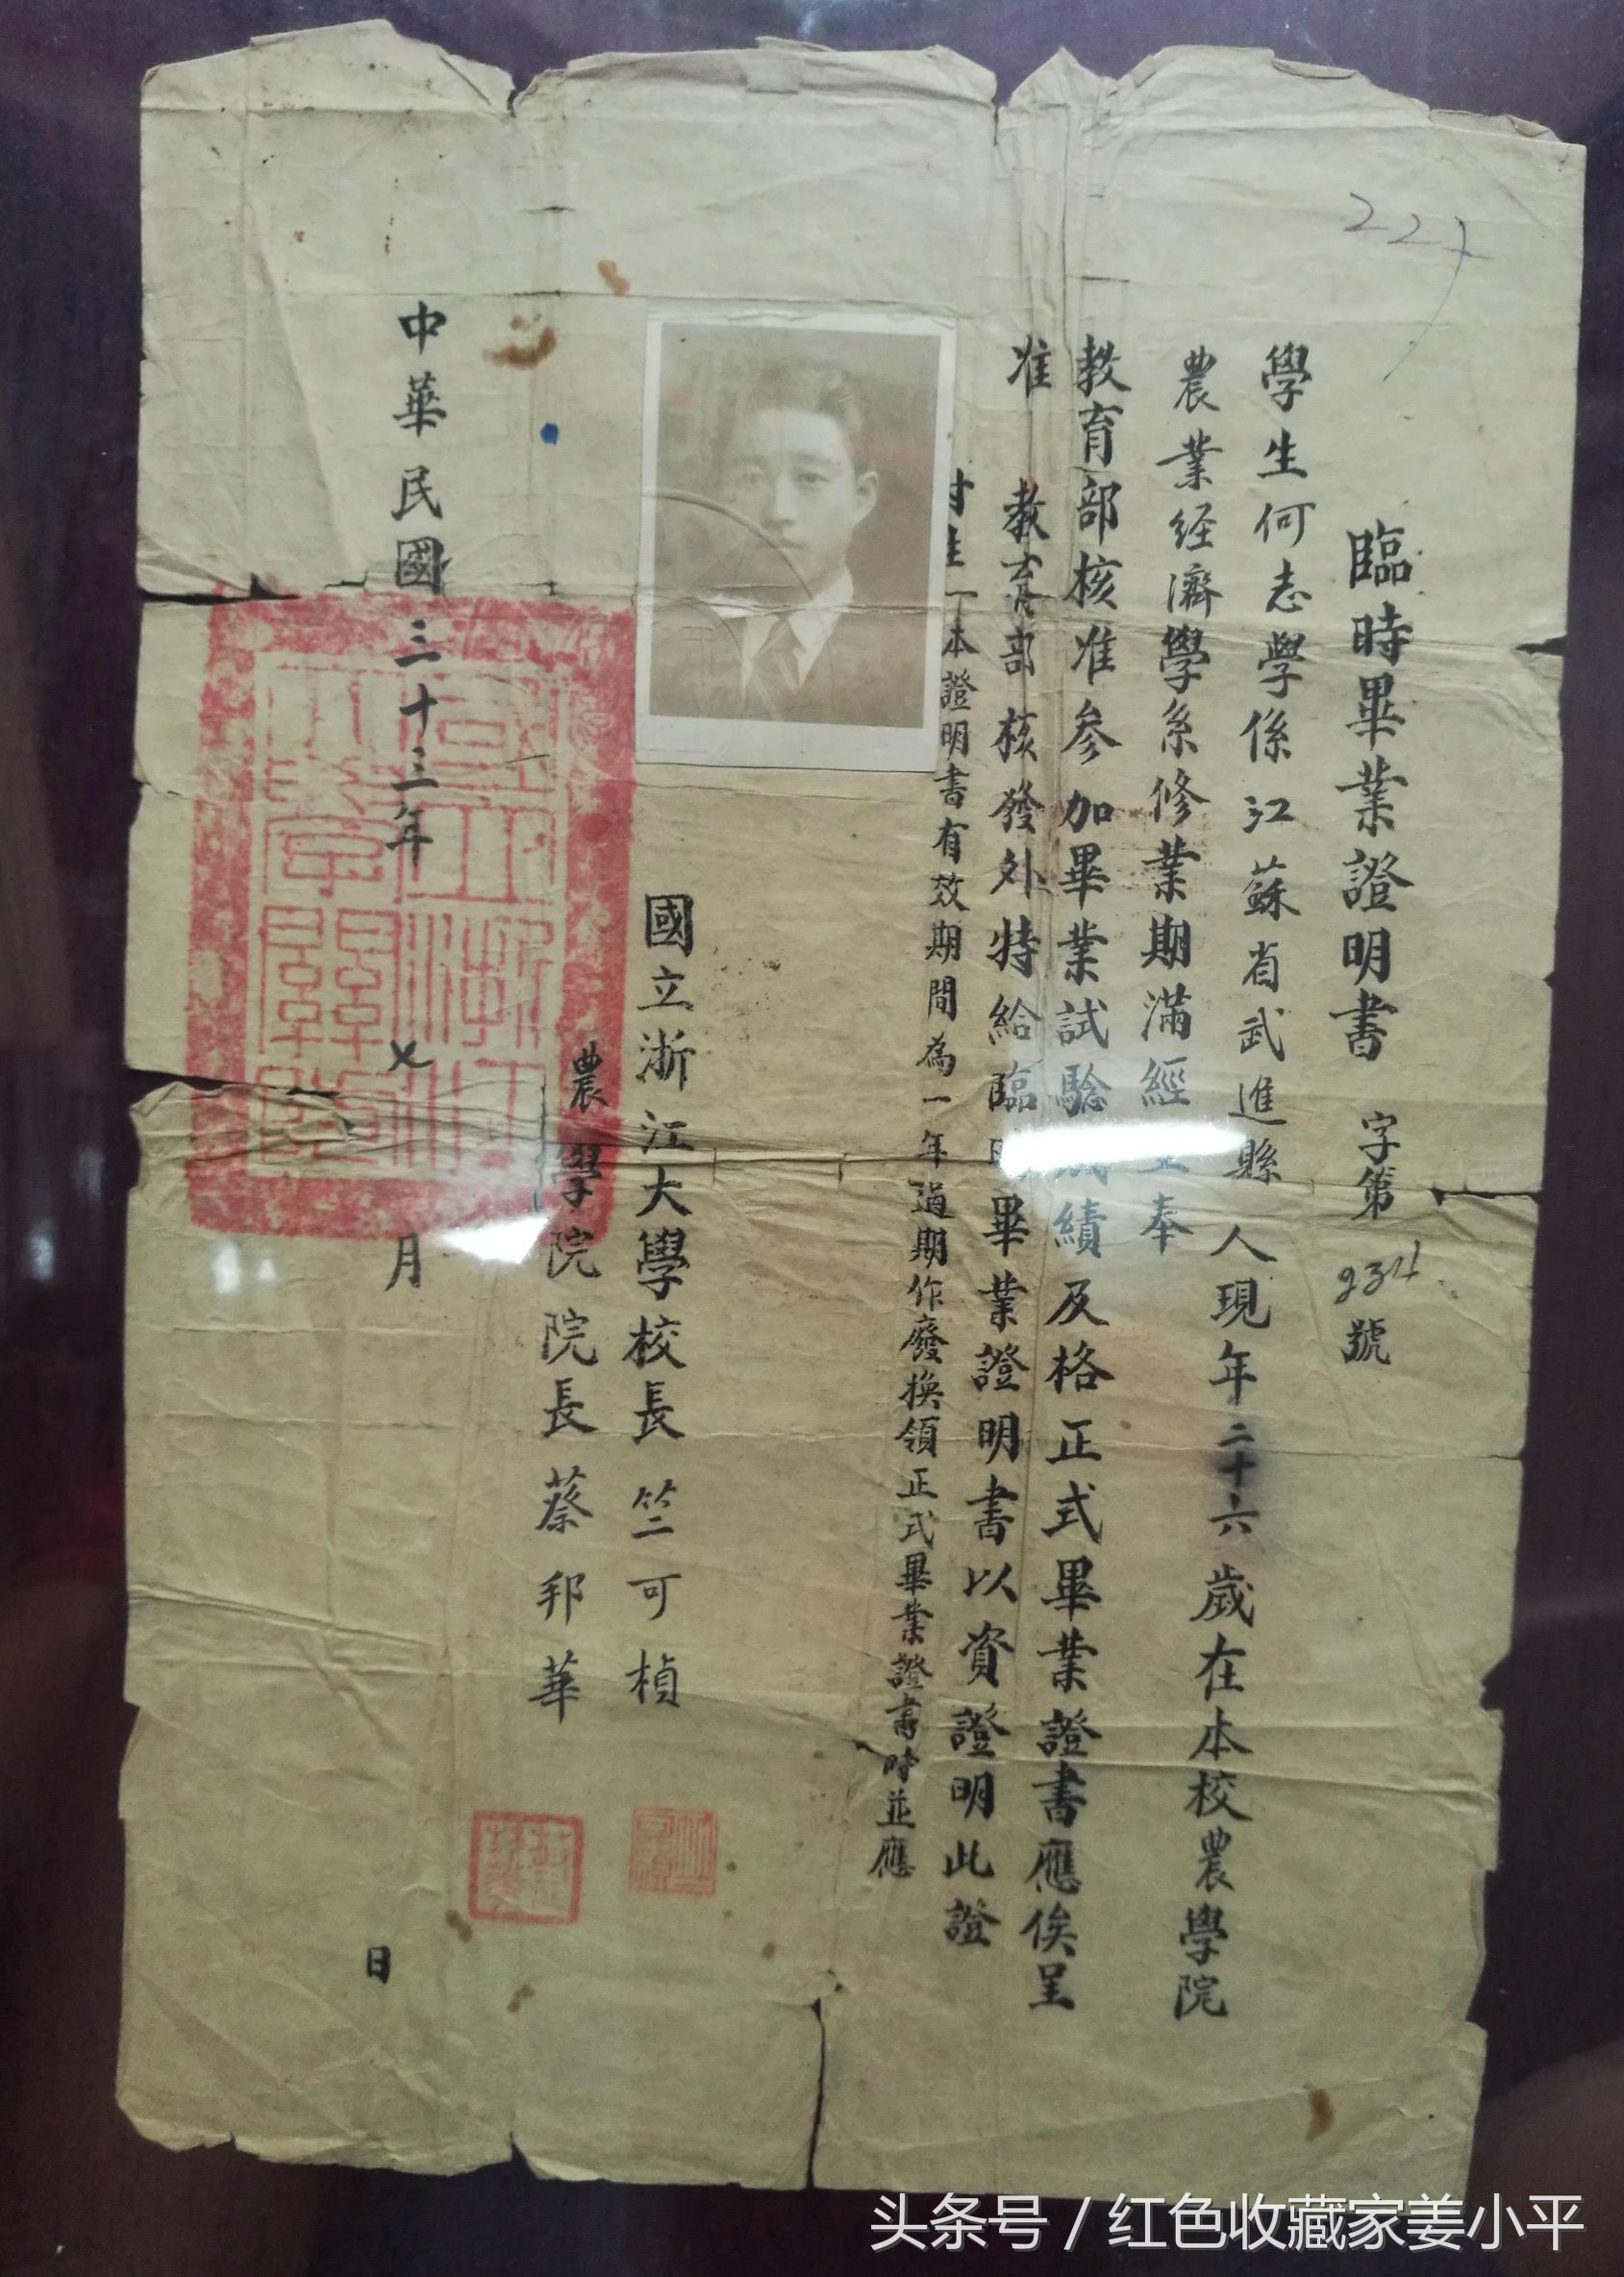 臨時畢業證明書 字第234號
學生何志學係江蘇省武進縣人現年二十六歲在本校農學院
農業经濟學系修業期滿經呈奉
教育部核准参加畢業試驗成績及格正式畢業證書應俟呈
准 教育部核發外特給臨時畢業證明書以資證明此證
本證明書有效期間為一年過期作廢換領正式畢業證書時並應
國立浙江大學校長竺可楨
農學院院長蔡邦華
中華民國三十三年 月 日
头条号 / 红色收藏家姜小平